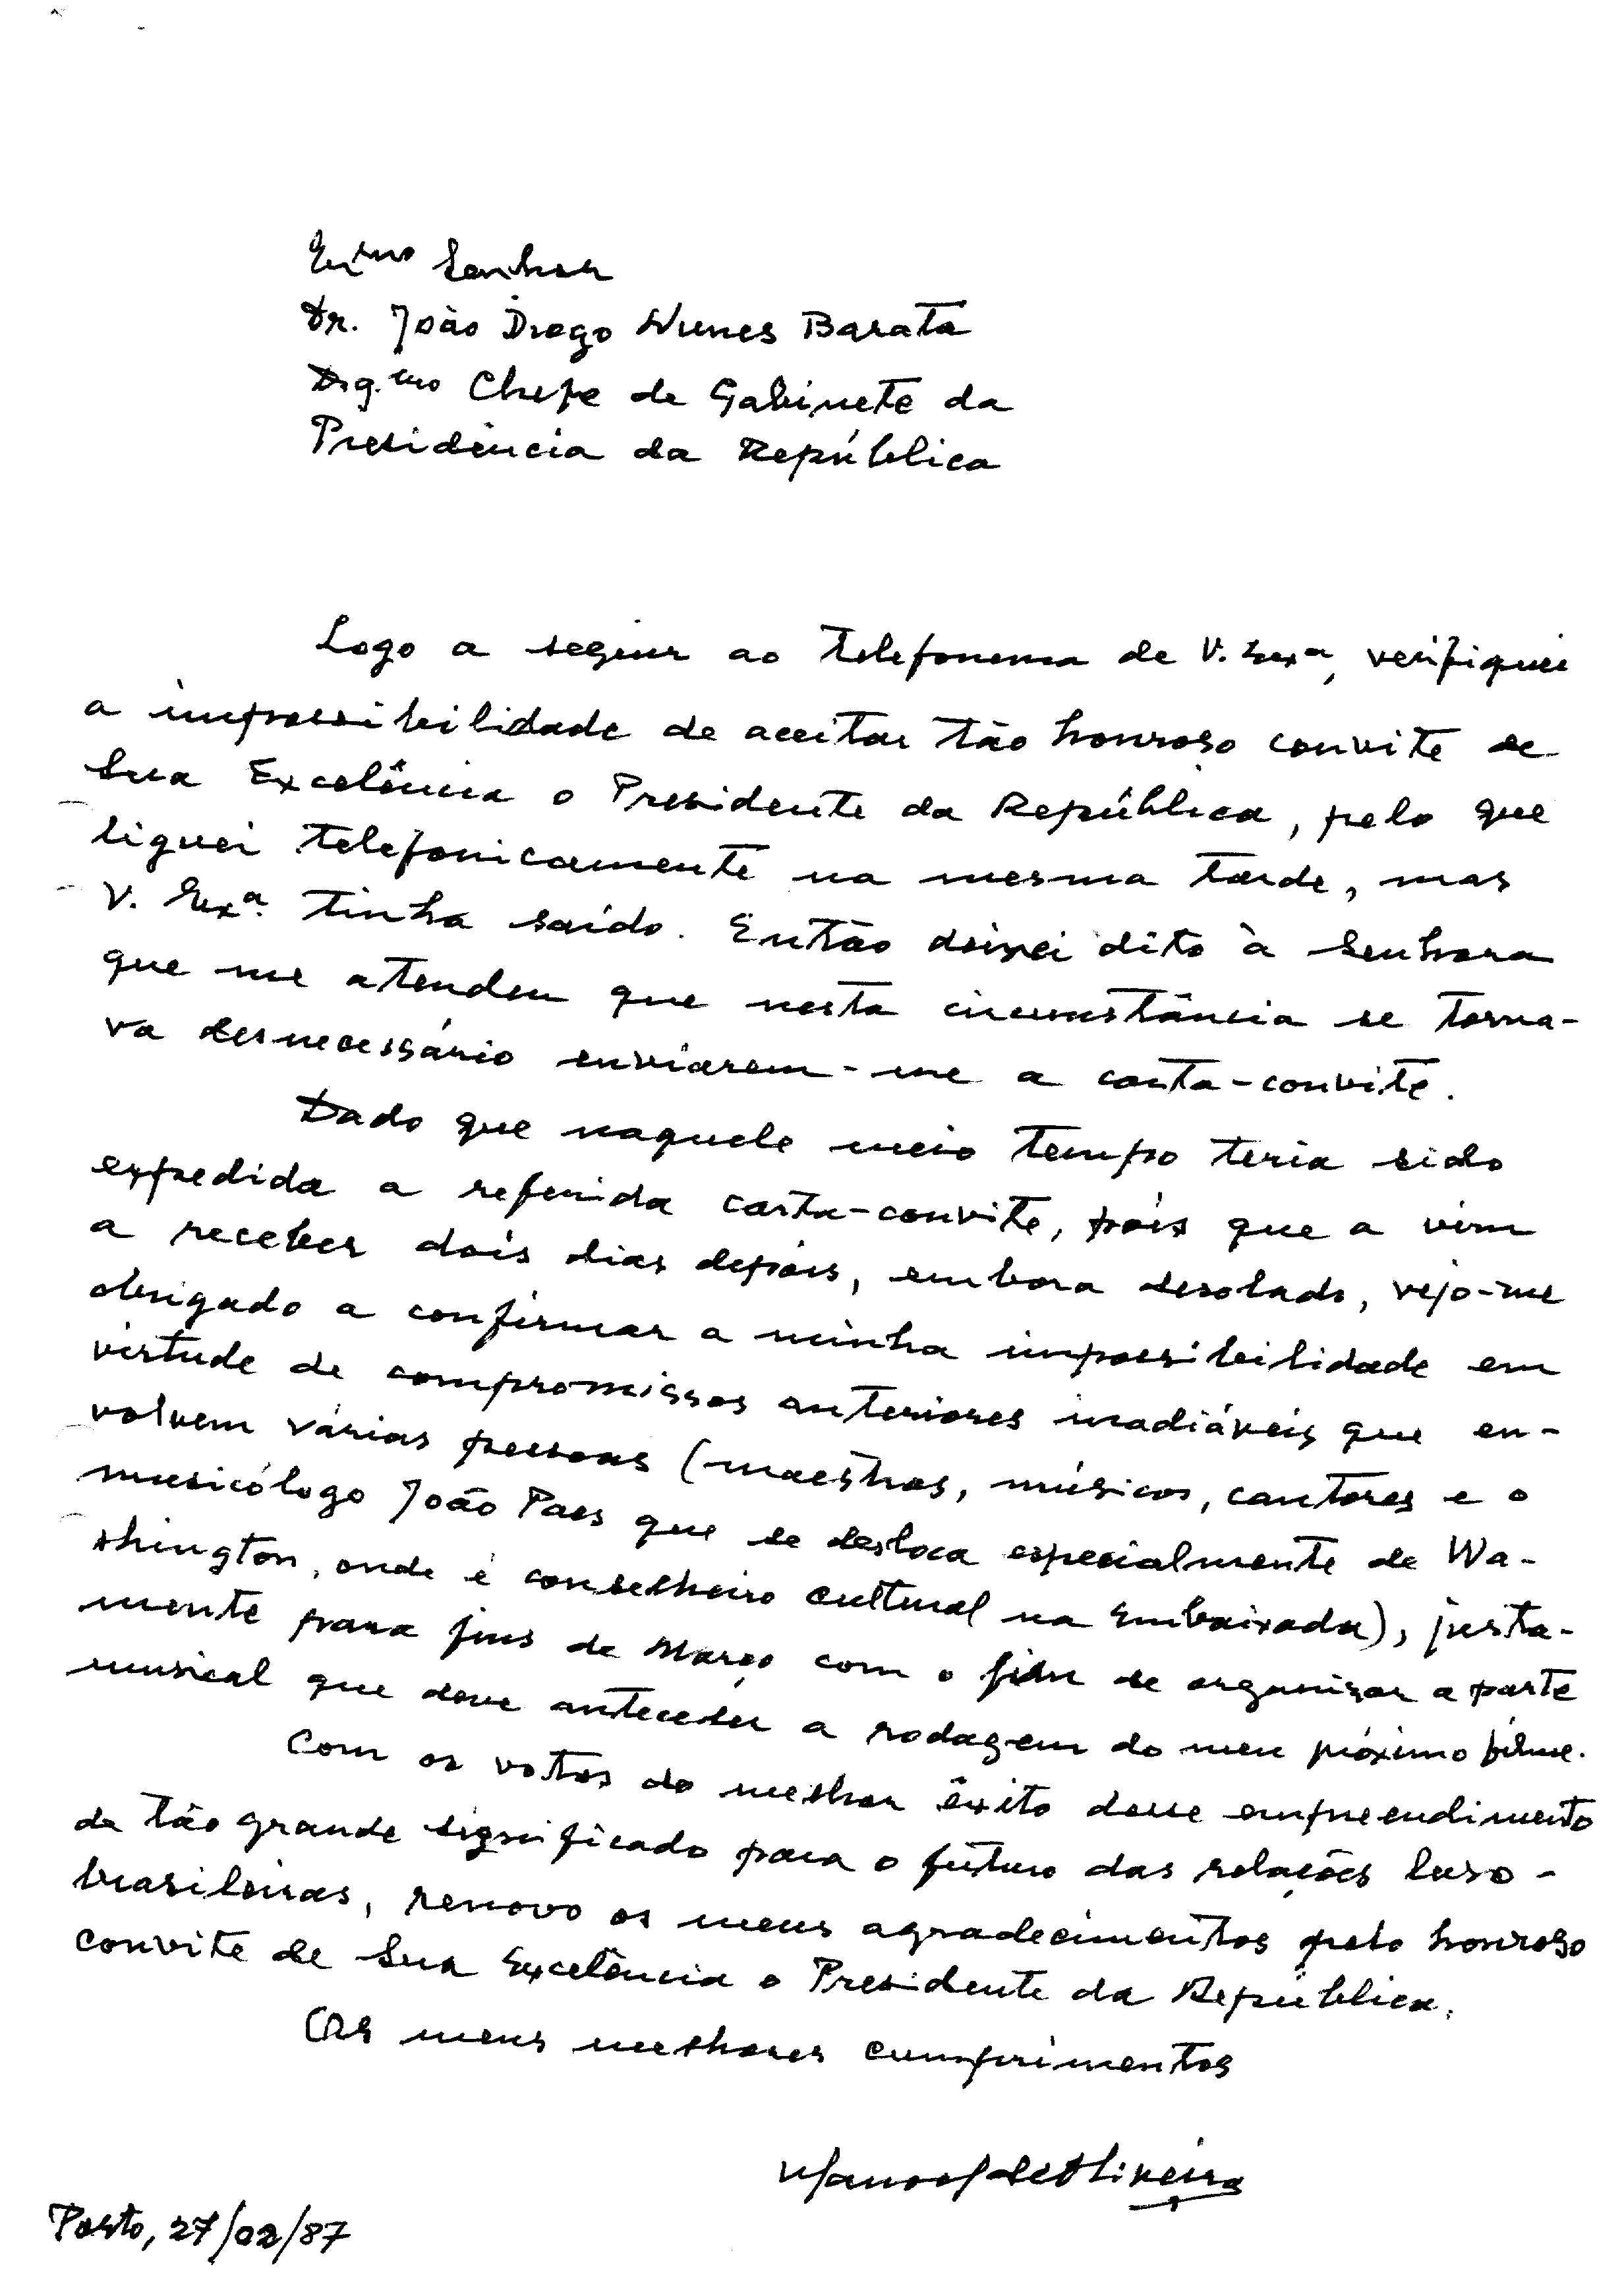 Exmo Senhor
Dr. João Diogo Nunes Barata
Digmo Chefe de Gabinete da
Presidência da República
Logo a seguir ao telefonema de V. Exª, verifiquei
a impossibilidade de aceitar tão honroso convite de
Sua Excelência o Presidente da República, pelo que
liguei telefonicamente na mesma tarde, mas
V. Exª. tinha saído. Então deixei dito à Senhora
que me atendeu que nesta circunstância se torna-
va desnecessário enviarem-me a carta-convite.
Dado que naquele meio tempo teria sido
expedida a referida carta-convite, pois que a vim
a receber dois dias depois, embora desolado, vejo-me
obrigado a confirmar a minha impossibilidade em
virtude de compromissos anteriores inadiáveis que en-
volvem várias pessoas (maestros, músicos, cantores e o
musicólogo João Paes que se desloca especialmente de Wa-
shington, onde é conselheiro cultural na Embaixada), justa-
mente para fins de Março com o fim de organizar a parte
musical que deve anteceder a rodagem do meu próximo filme.
Com os votos do melhor êxito desse empreendimento
de tão grande significado para o futuro das relações luso-
brasileiras, renovo os meus agradecimentos pelo honroso
convite de Sua Excelência o Presidente da República.
Os meus melhores cumprimentos
Manoel de Oliveira
Porto, 27/02/87